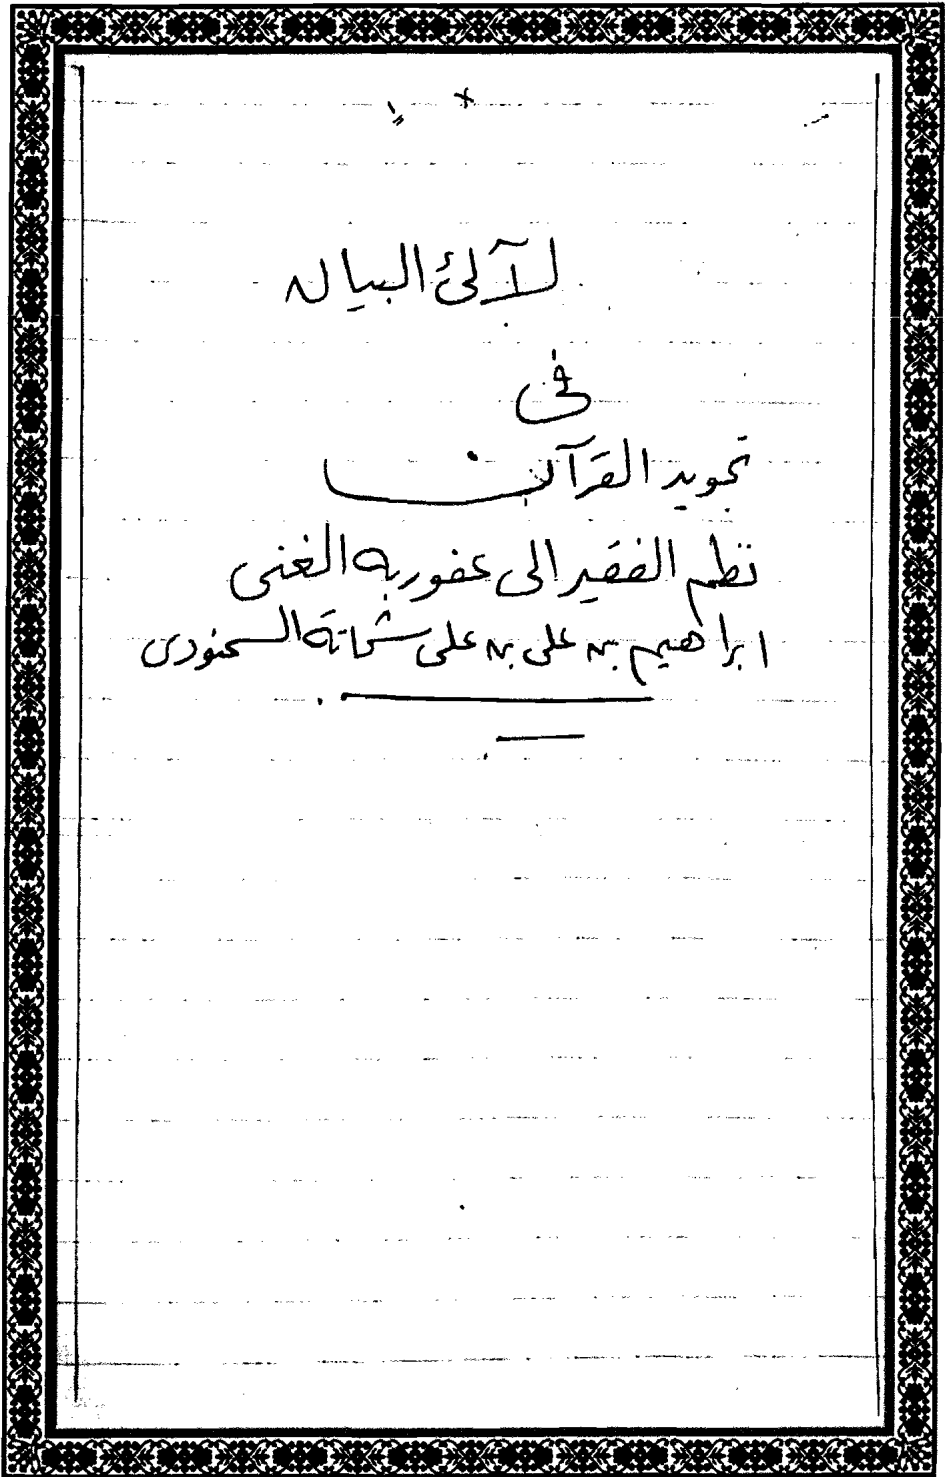 لآلئ البيان
فى
تجويد القرآن
نظم الفقير الى عفو ربه الغنى
ابراهيم بن على بن على شحاته السمنودى